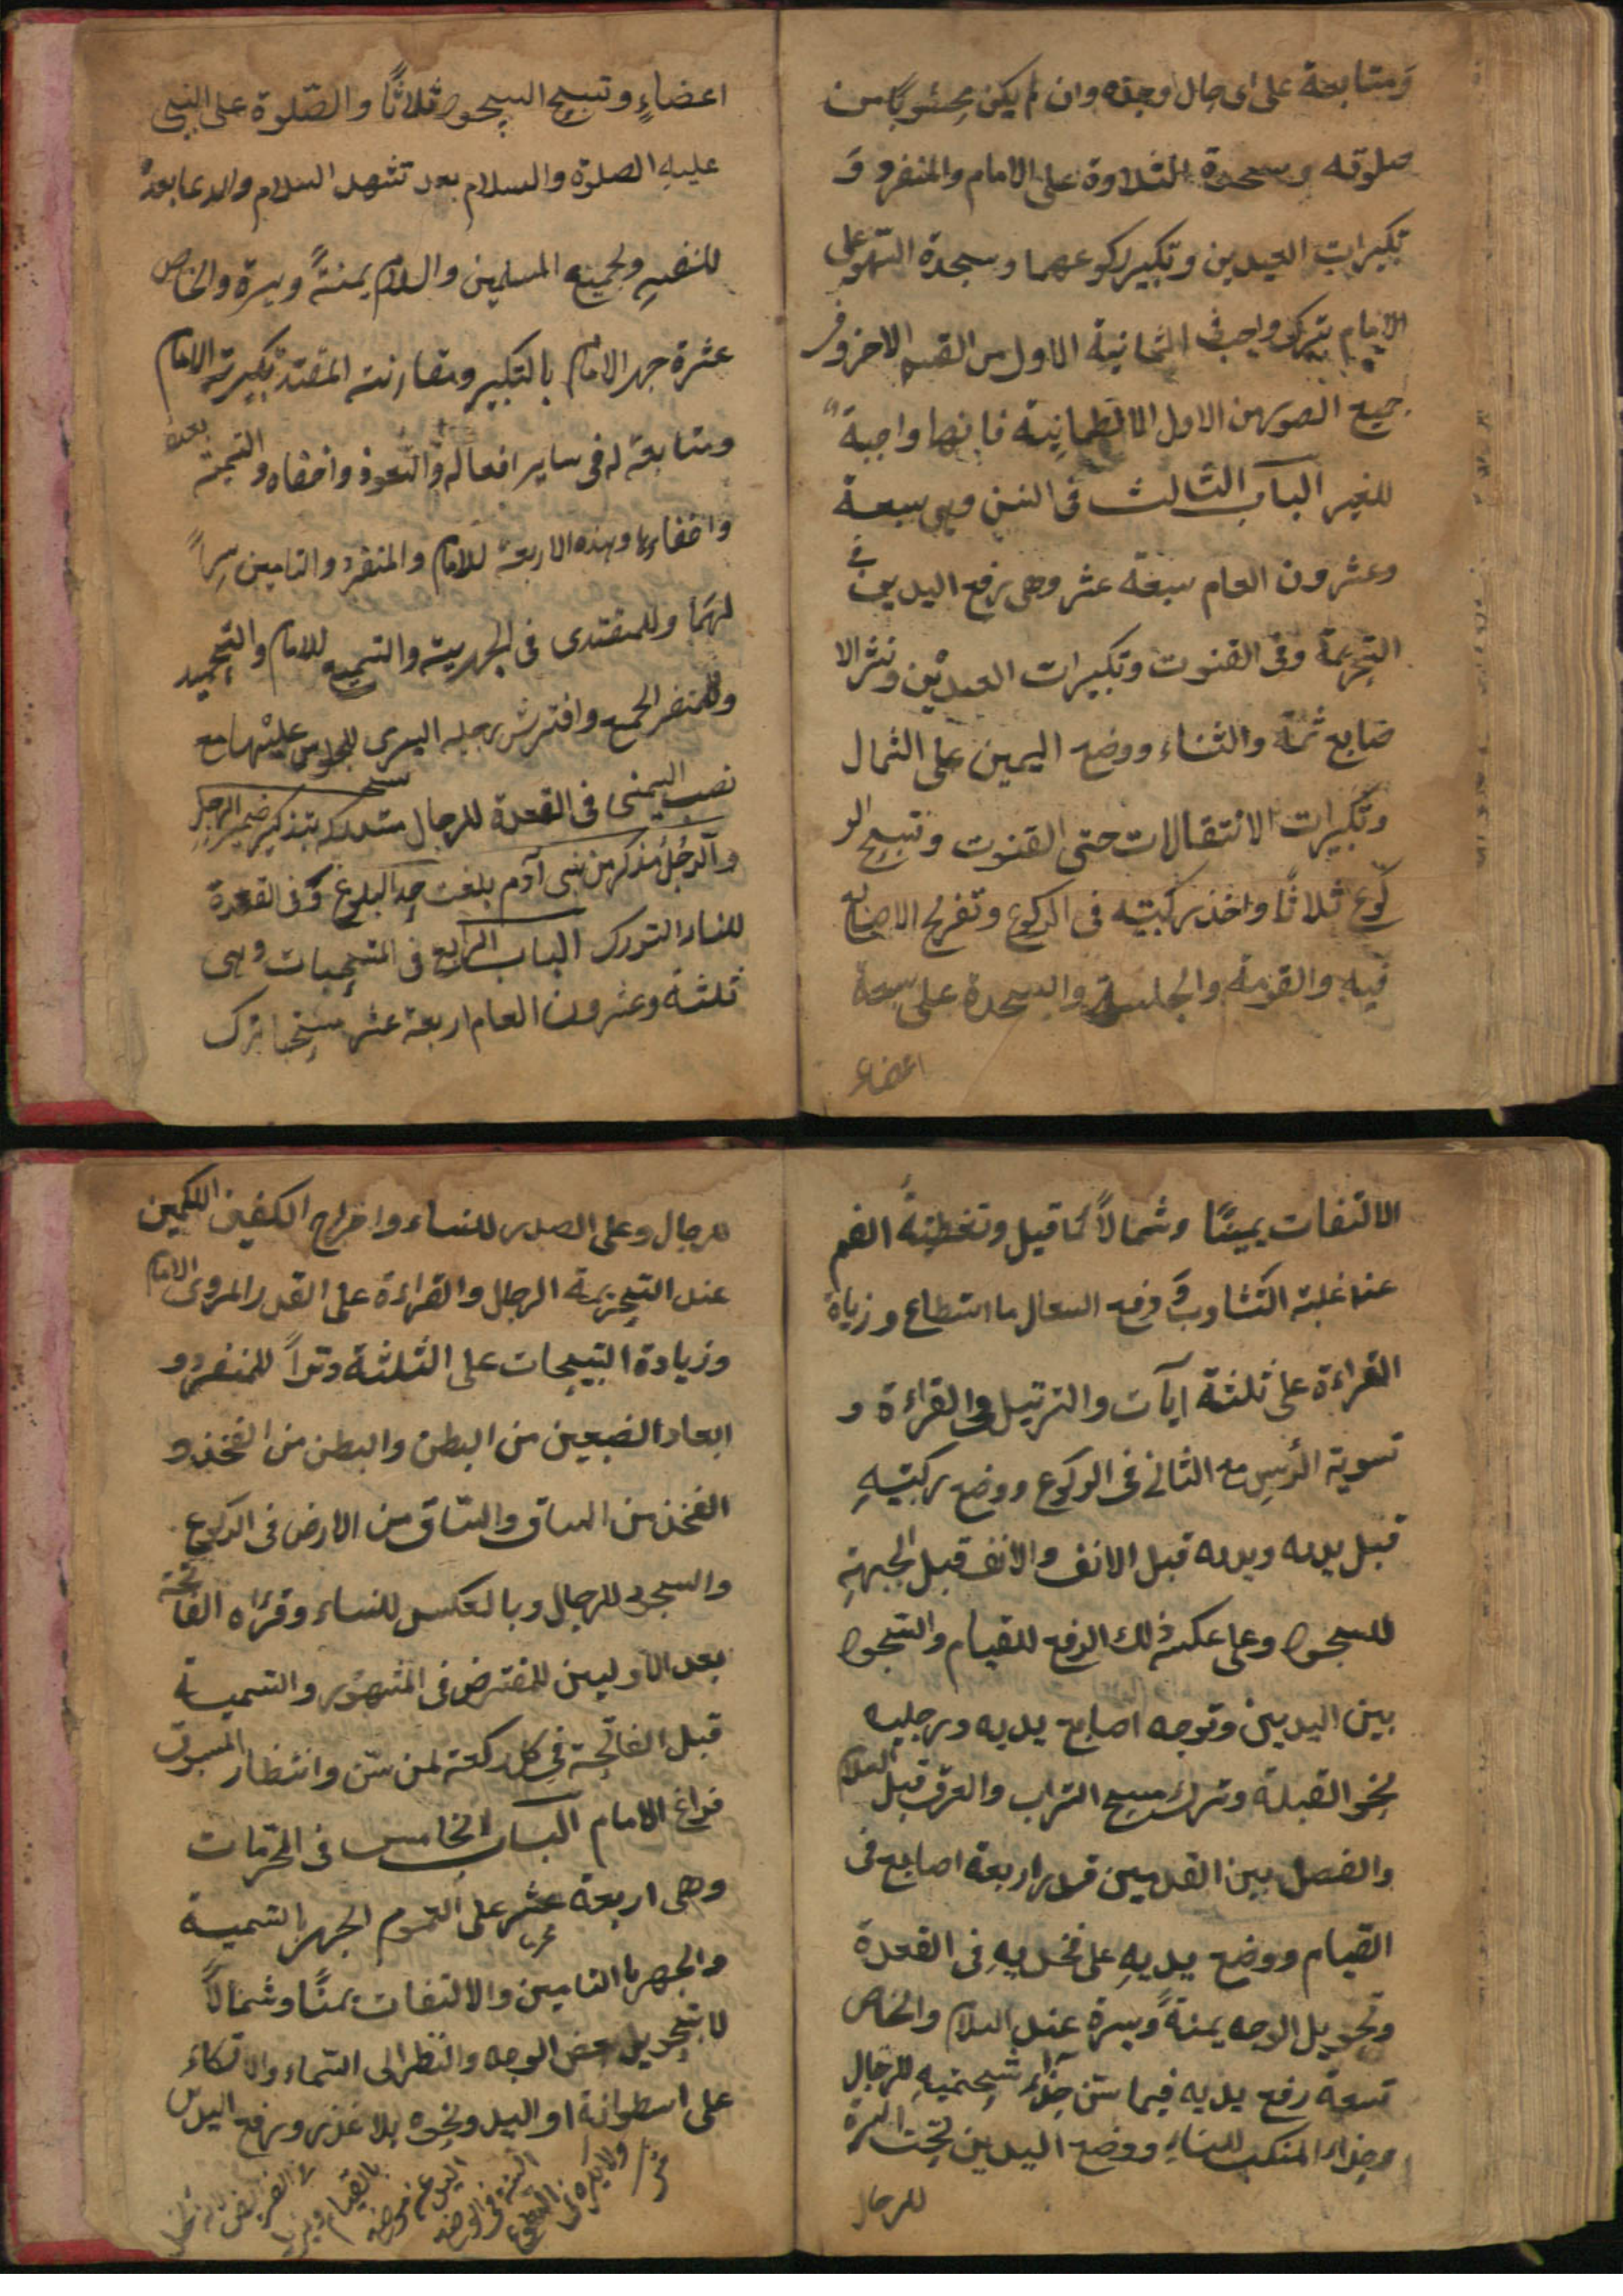 ومتابعة على اى حال وجده وان لم يكن محسوبا من
صلوته وسجدة التلاوة على الامام والمنفرد و
تكبيرات العيدين وتكبير ركوعهما وسجدة السهو على
الامام بترك واجب فى الثمانية الاول من القسم الاخر وفى
جميع الصور من الاول الا الطمانينة فانها واجبة
للغير الباب الثالث فى السنن وهى سبعة
وعشرون العام سبعة عشر وهى رفع اليدين فى
التحريمة وفى القنوت وتكبيرات العيدين ونشر الا
صابع ثمة والثناء ووضع اليمين على الشمال
وتكبيرات الانتقالات حتى القنوت وتسبيح الر
كوع ثلاثا واخذ ركبتيه فى الركوع وتفريج الاصابع
فيه والقومة والجلسة والسجدة على سبعة
اعضاء
اعضاء وتسبيح السجود ثلاثا والصلوة على النبى
عليه الصلوة والسلام بعد تشهد السلام والدعا بعده
لنفسه ولجميع المسلمين والسلام يمنة ويسرة والخاص
عشرة جهر الامام بالتكبير ومقارنة المقتد تكبيرته الامام
ومتابعة له فى ساير افعاله والتعوذ واخفاه والتسمية بعده
واخفاءها وهذه الاربعة للامام والمنفرد والتامين سرا
لهما وللمقتدى فى الجهرية والتسميع للامام والتحميد
وللمنفر الجمع وافترش رجله اليسرى للجلوس عليها مع
نصب اليمنى فى القعدة للرجال
والرجل مذكر من بنى آدم بلغت حد البلوغ وفى القعدة
للنساء التورك الباب الرابع فى المستحبات وهى
ثلثة وعشرون العام اربعة عشر مستحبا ترك
الالتفات يمينا وشمالا كما قيل وتغطية الفم
عند غلبة التثاوب ودفع السعال ما استطاع وزيادة
القراءة على ثلثة ايات والترتيل فى القراءة و
تسوية الرئس مع الثانى فى الركوع ووضع ركبتيه
قبل يديه ويديه قبل الانف والانف قبل الجبهة
للسجود وعلى عكسه ذلك الرفع للقيام والسجود
بين اليدين وتوجه اصابع يديه ورجليه
نحو القبلة وترك مسح التراب والعرق قبل السلام
والفصل بين القدمين قدر اربعة اصابع فى
القيام ووضع يديه على فخذيه فى القعدة
وتحويل الوجه يمنة ويسرة عند السلام والخاص
تسعة رفع يديه فيما سنن حذاء شحمتيه للرجال
وحذاء المنكب للنساء ووضع اليدين تحت السرة
للرجال
للرجال وعلى الصدر للنساء واخراج الكفين الكمين
عند التحريمة الرجال والقراءة على القدر المروى الامام
وزيادة التسبيحات على الثلثة وترا للمنفرد و
ابعاد الضبعين من البطن والبطن من الفخذ و
الفخذ من الساق والساق من الارض فى الركوع
والسجود للرجال وبالعكس للنساء وقراه الفاتحة
بعد الاوليين للمفترض فى المشهور والتسمية
قبل الفاتحة فى كل ركعة لمن سنن وانتظار المسبوق
فراغ الامام الباب الخامس فى المحرمات
وهى اربعة عشر على العموم الجهر بالتسمية
والجهر بالتامين والالتفات يمنا وشمالا
لا بتحويل بعض الوجه والنظر الى السماء والاتكاء
على اسطوانة او اليد ونحوه بلا عذر ورفع اليدين